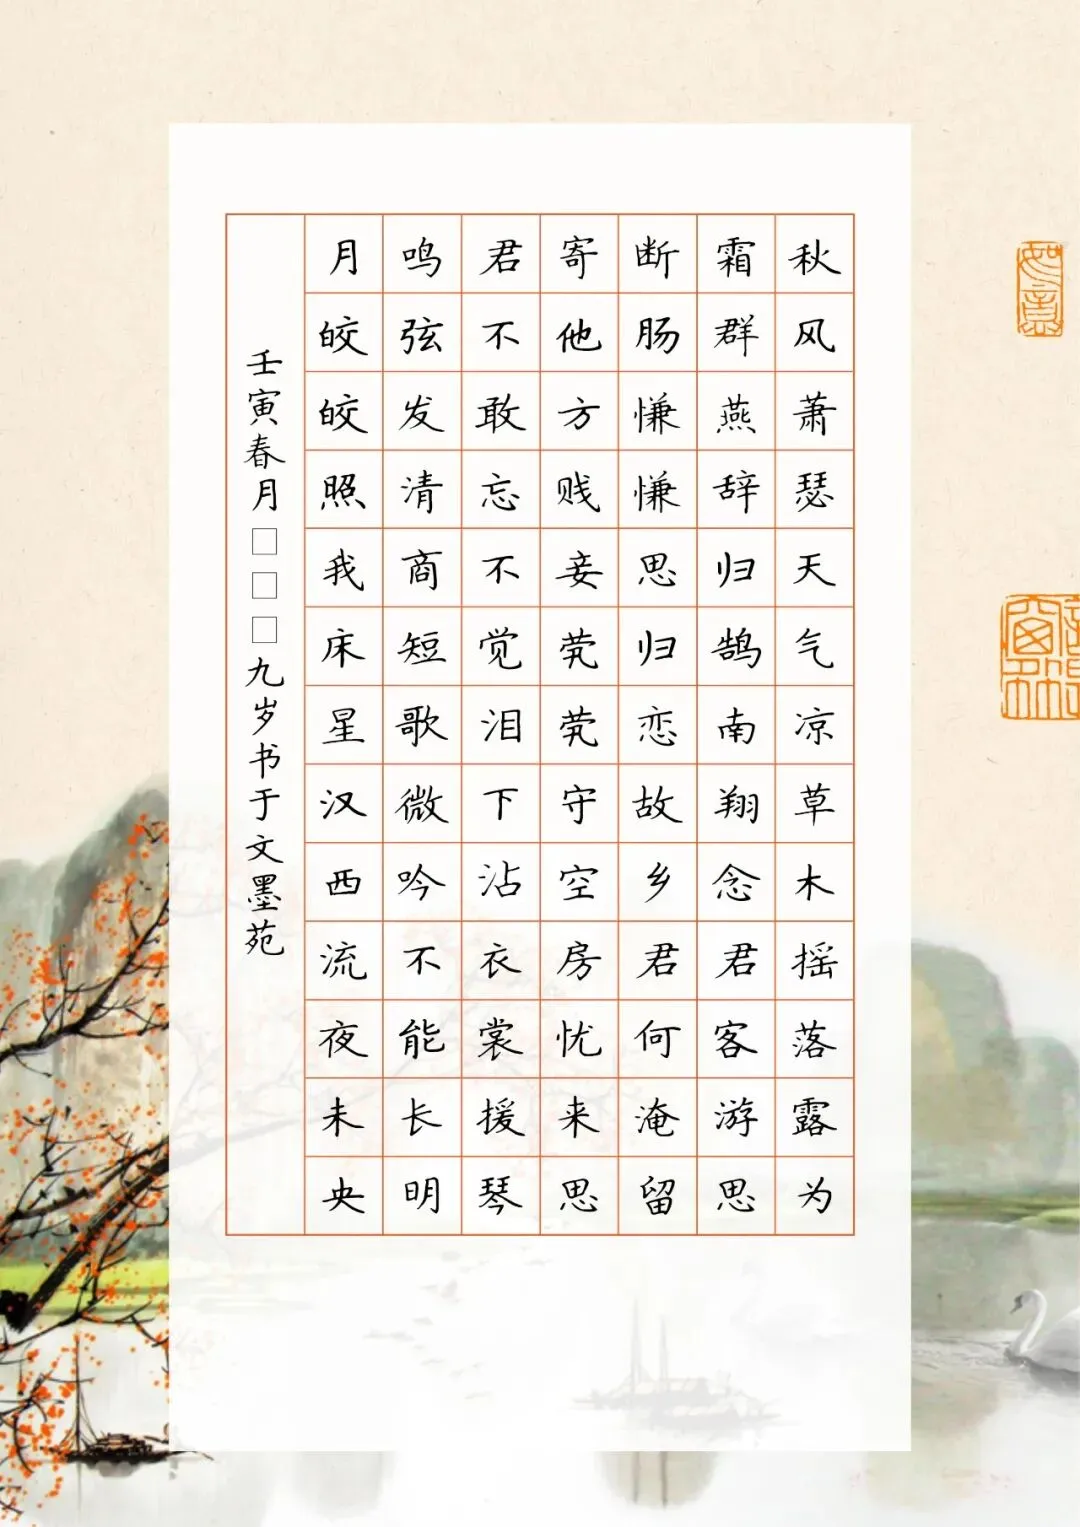 秋风萧瑟天气凉草木摇落露为
霜群燕辞归鹄南翔念君客游思
断肠慊慊思归恋故乡君何淹留
寄他方贱妾茕茕守空房忧来思
君不敢忘不觉泪下沾衣裳援琴
鸣弦发清商短歌微吟不能长明
月皎皎照我床星汉西流夜未央
壬寅春月□□□九岁书于文墨苑
如意